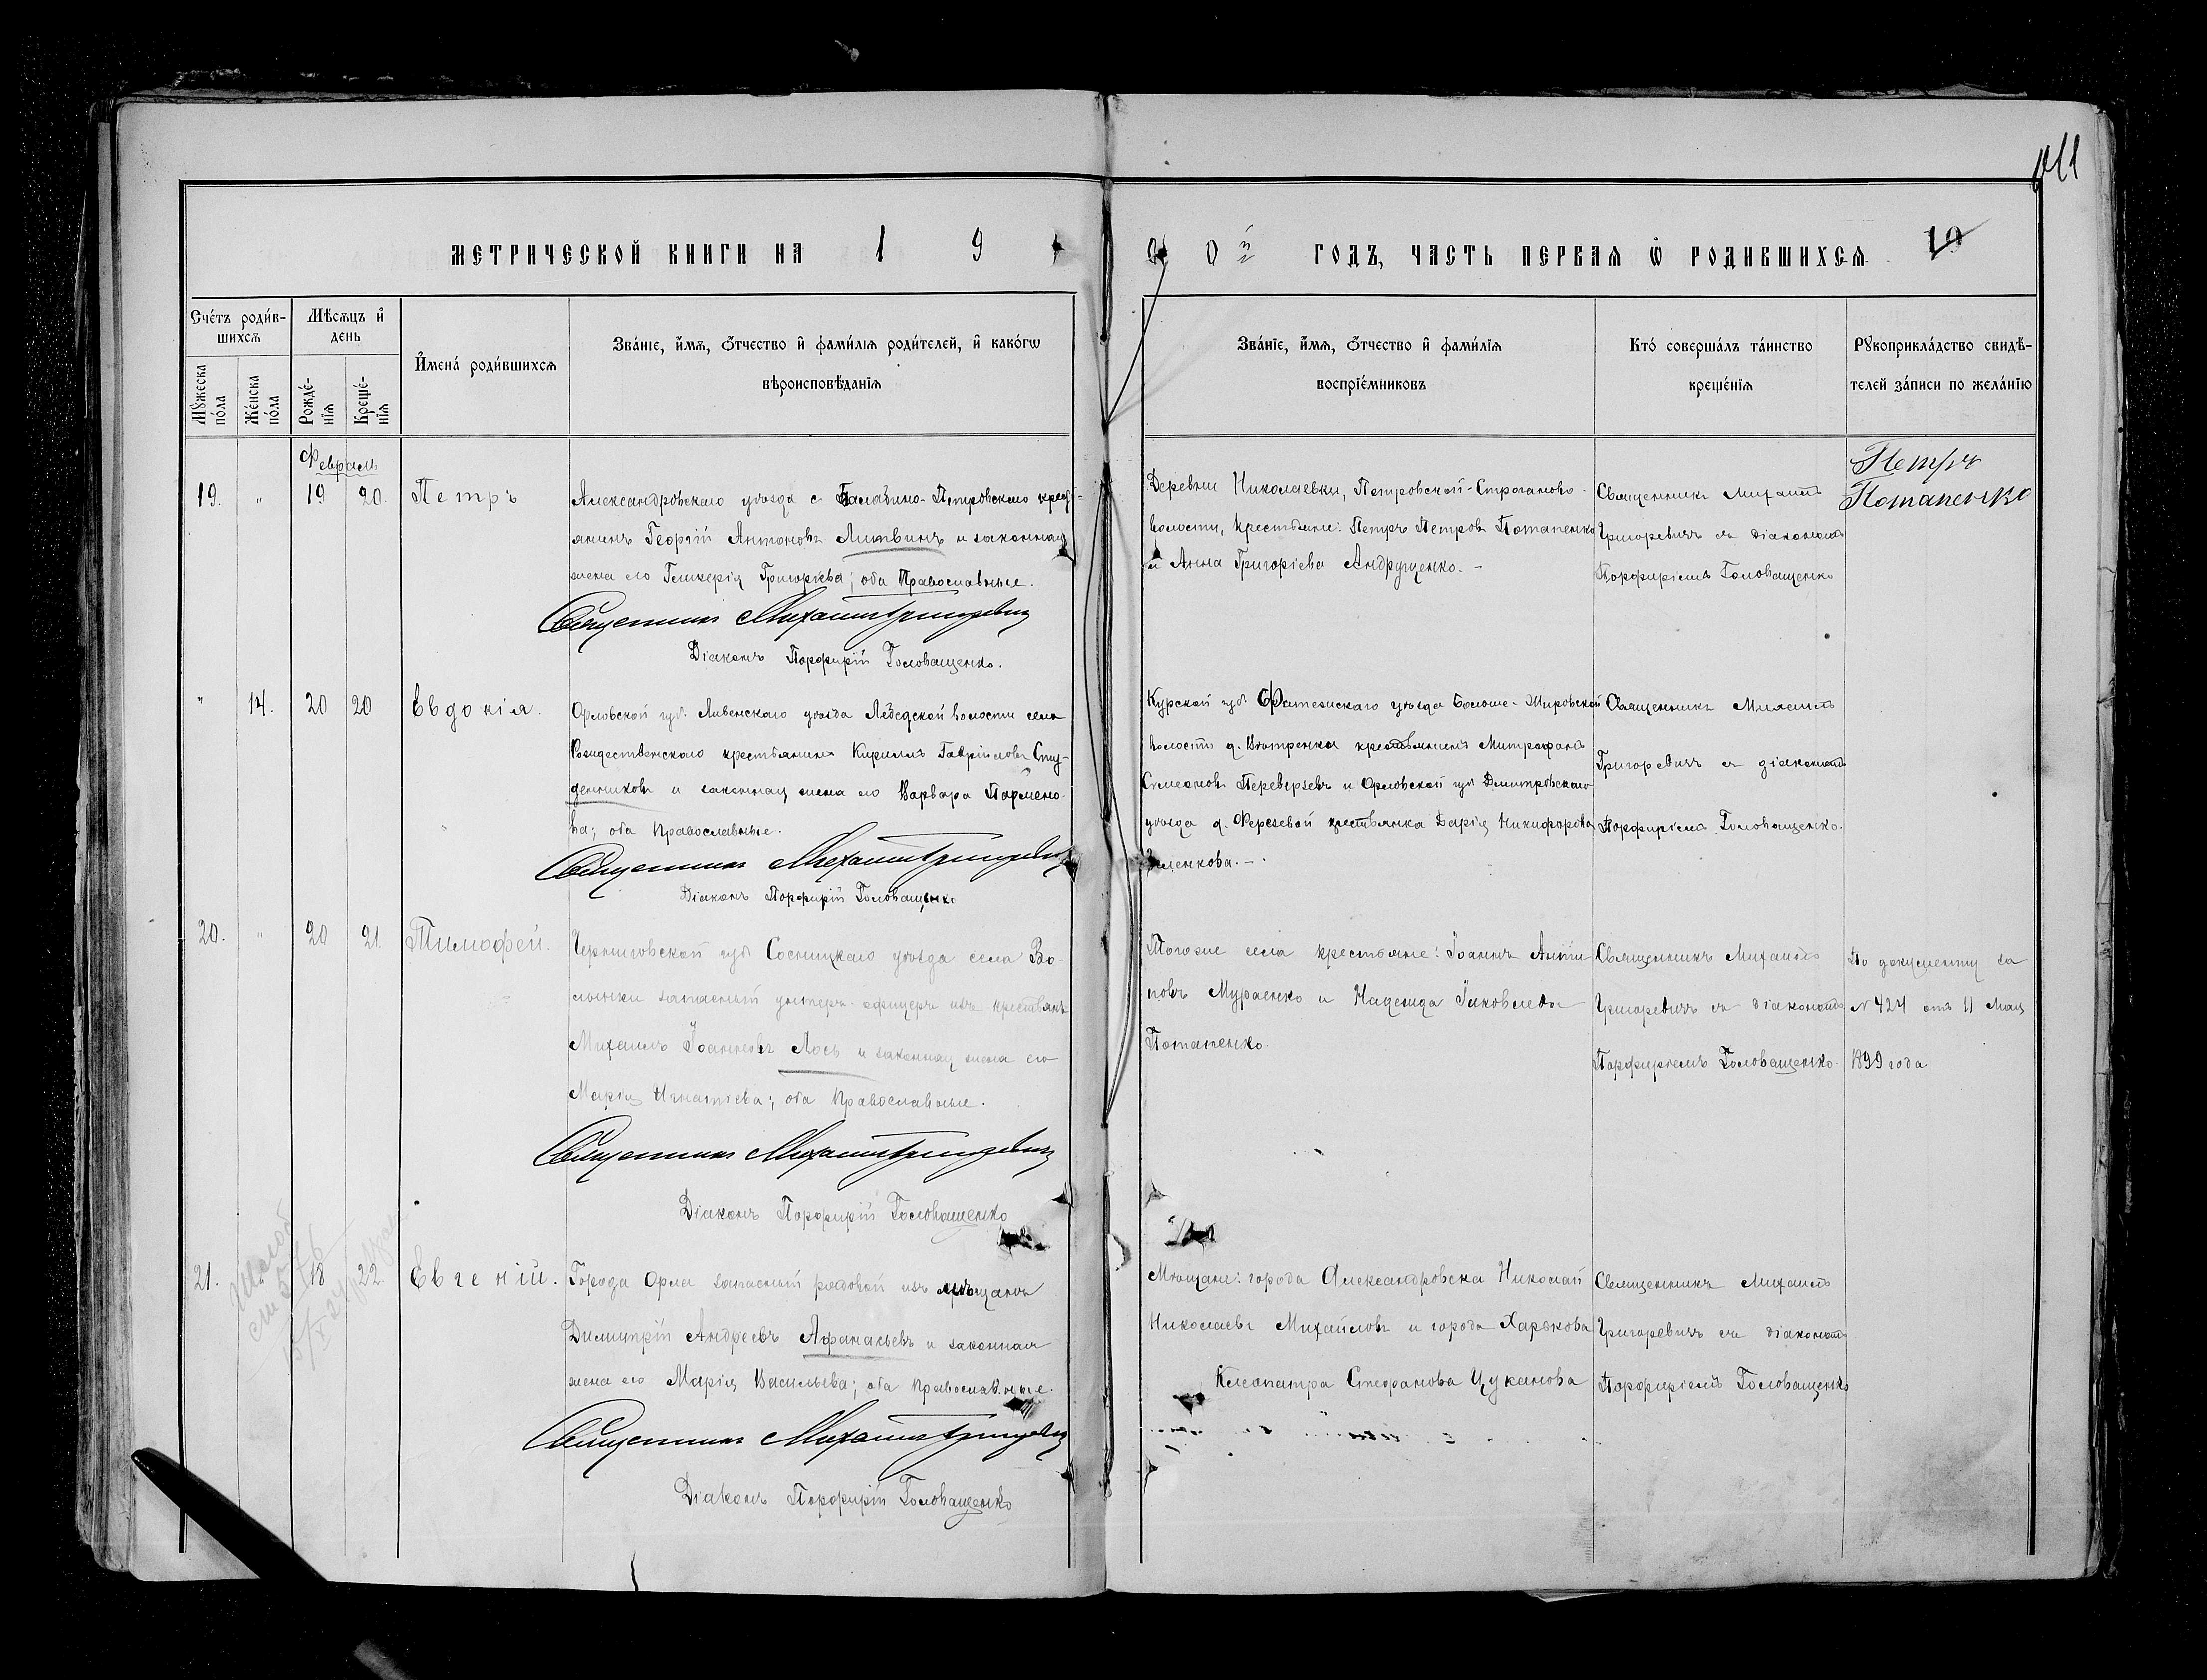 11
МЕТРИЧЕСКОЙ КНИГИ НА 1 9
0 0й ГОДЪ, ЧАСТЬ ПЕРВАЯ Ѡ РОДИВШИХСЯ 10
Сче́тъ роди́в-
шихсѧ
Мѣсѧцъ и҆
день
И҆мена̀ роди́вшихсѧ
Зва́нїе, и҆́мѧ, ѻ҆́тчество и҆ фами́лїѧ роди́телей, и҆ како́гѡ
вѣроисповѣ́данїѧ
Мꙋ́жеска
по́ла
Же́нска
по́ла
Рожде́-
нїѧ
Креще́-
нїѧ
Зва́нїе, и҆́мѧ, ѻ҆́тчество и҆ фами́лїѧ
воспрїе́мниковъ
Кто̀ соверша́лъ та́инство
креще́нїѧ
Рꙋкоприкла́дство свидѣ́-
телей за́писи по жела́нїю
Февраль
19. " 19 20. Петръ
Александровскаго уѣзда с Балабино-Петровскаго крест-
янинъ Георгій Антоновъ Литвинъ и законная
жена его Гликерія Григорієва; оба Православные.
Священникъ Михаилъ Григоревичъ
Діаконъ Порфирій Головащенко.
Деревни Николаевки, Петровской-Строганово-
волости, крестьяне: Петръ Петровъ Потапенко
и Анна Григорієва Андрущенко. -
Священникъ Михаилъ
Григоревичъ съ діакономъ
Порфиріемъ Головащенко
Петръ
Потапенко
" 14. 20 20 Евдокія.
Орловской губ. Ливенскаго уѣзда Лебедской волости села
Рождественскаго крестьянинъ Кириллъ Гавріиловъ Сту-
денниковъ и законная жена его Варвара Пармено-
ва; оба Православные.
Священникъ Михаилъ Григоревичъ
Діаконъ Порфирій Головащенко
Курской губ. Фатежскаго уѣзда Больше-Жировской
волости д. крестьянинъ Митрофанъ
Симеоновъ Переверзевъ и Орловской губ Дмитровскаго
уѣзда д. крестьянка Дарія Никифорова
Священникъ Михаилъ
Григоревичъ съ діакономъ
Порфиріемъ Головащенко.
20. " 20 21. Тимофей.
Черниговской губ Сосницкаго уѣзда села Во-
лынки запасный унтеръ-офицеръ изъ крестьянъ
Михаилъ Іоанновъ Лось и законная жена его
Марія Игнатієва; оба Православные.
Священникъ Михаилъ Григоревичъ
Діаконъ Порфирій Головащенко
Тогоже села крестьяне: Іоаннъ Анти
повъ Мураенко и Надежда Іаковлева
Потапенко.
Священникъ Михаилъ
Григоревичъ съ діакономъ
Порфиріемъ Головащенко.
По документу за
№ 424 отъ 11 Мая
1899 года
21. 18 22. Евгеній.
Города Орла запасный рядовой изъ мѣщанъ
Димитрій Андреевъ Афанасьевъ и законная
жена его Марія Васильева; оба православные.
Священникъ Михаилъ Григоревичъ
Діаконъ Порфирій Головащенко
Мѣщане: города Александровска Николай
Николаевъ Михайловъ и города Харькова
Клеопатра Стефанова Цуканова
Священникъ Михаилъ
Григоревичъ съ діакономъ
Порфиріемъ Головащенко